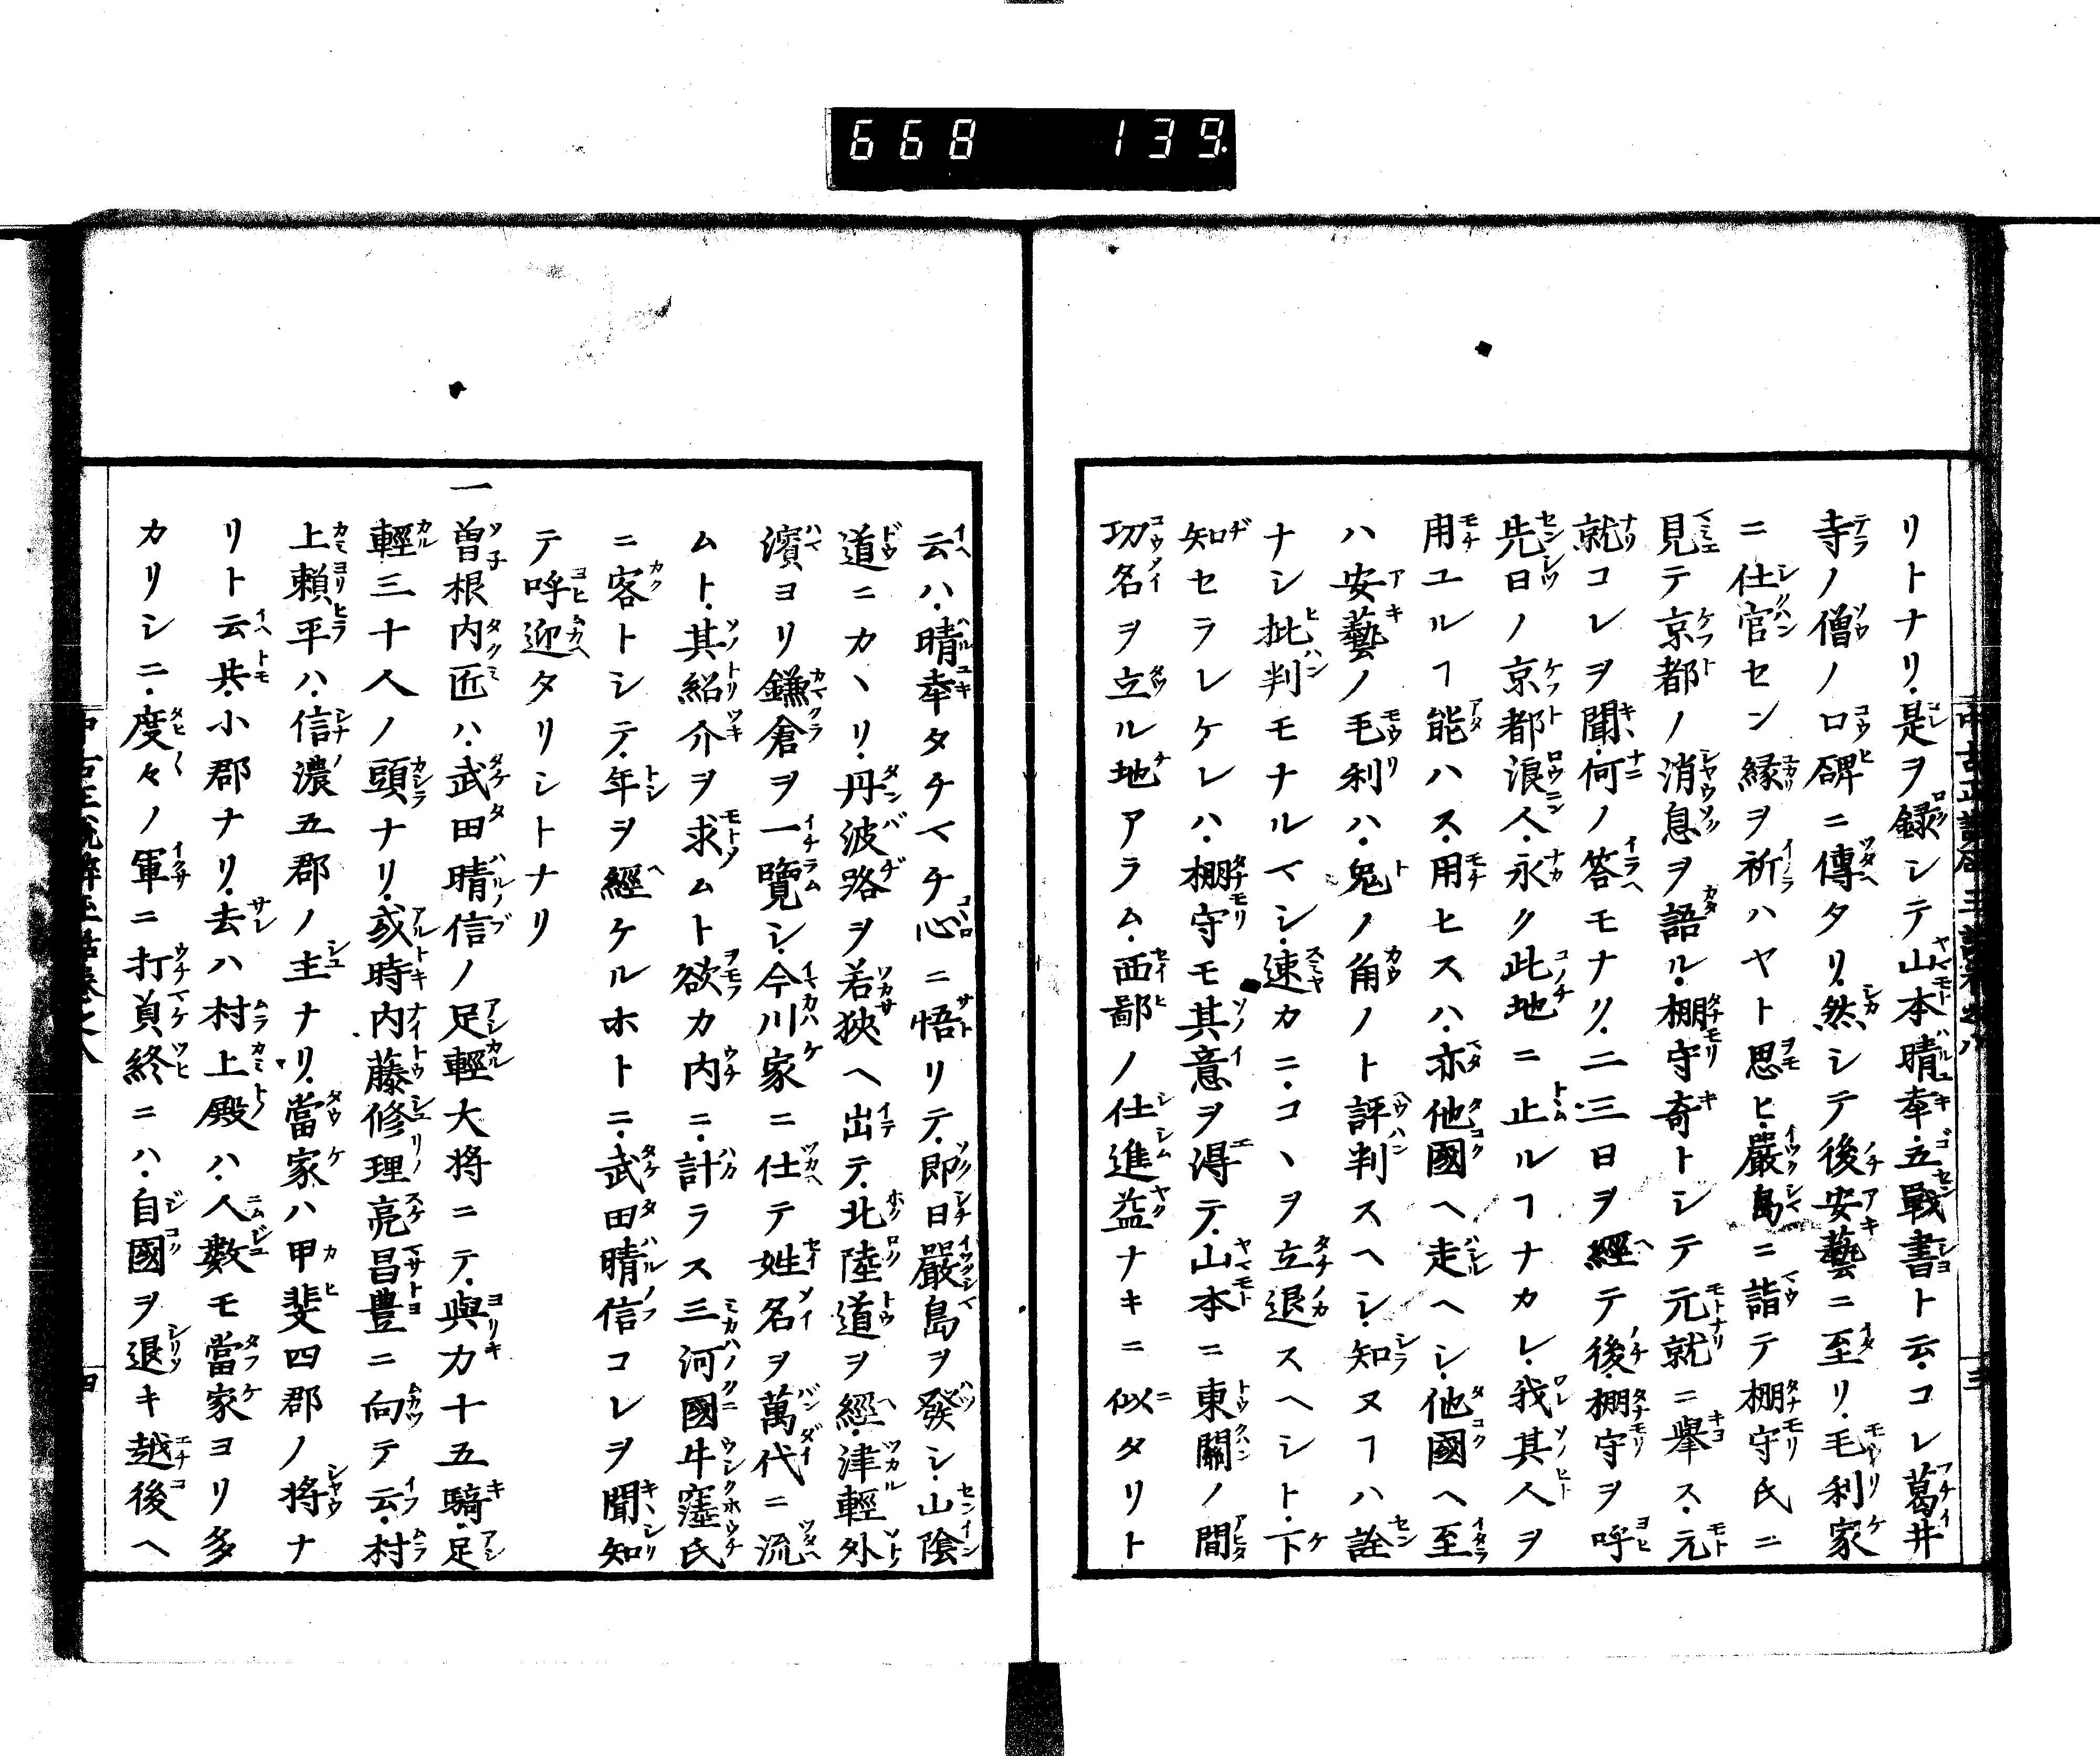 668 139.
リトナリ是ヲ録シテ山本晴幸五戰書ト云コレ葛井
寺ノ僧ノ口碑ニ傳タリ然シテ後安藝ニ至リ毛利家
ニ仕官セン縁ヲ祈ハヤト思ヒ嚴島ニ詣テ棚守氏ニ
見テ京都ノ消息ヲ語ル棚守奇トシテ元就ニ舉ス元
就コレヲ聞何ノ答モナリ二三日ヲ經テ後棚守ヲ呼
先日ノ京都浪人永ク此地ニ止ルヿナカレ我其人ヲ
用ユルヿ能ハス用ヒスハ亦他國ヘ走ヘシ他國ヘ至
ハ安藝ノ毛利ハ鬼ノ角ノト評判スヘシ知ヌヿハ詮
ナシ批判モナルマシ速カニコヽヲ立退スヘシト下
知セラレケレハ棚守モ其意ヲ得テ山本ニ東關ノ間
功名ヲ立ル地アラム西鄙ノ仕進益ナキニ似タリト
云ハ晴幸タチマチ心ニ悟リテ即日嚴島ヲ發シ山陰
道ニカヽリ丹波路ヲ若狹ヘ出テ北陸道ヲ經津輕外
濱ヨリ鎌倉ヲ一覽シ今川家ニ仕テ姓名ヲ萬代ニ流
ムト其紹介ヲ求ムト欲カ内ニ計ラス三河國牛窪氏
ニ客トシテ年ヲ經ケルホトニ武田晴信コレヲ聞知
テ呼迎タリシトナリ
一曽根内匠ハ武田晴信ノ足輕大将ニテ與力十五騎足
輕三十人ノ頭ナリ或時内藤修理亮昌豊ニ向テ云村
上頼平ハ信濃五郡ノ主ナリ當家ハ甲斐四郡ノ将ナ
リト云共小郡ナリ去ハ村上殿ハ人數モ當家ヨリ多
カリシニ度々ノ軍ニ打負終ニハ自國ヲ退キ越後ヘ